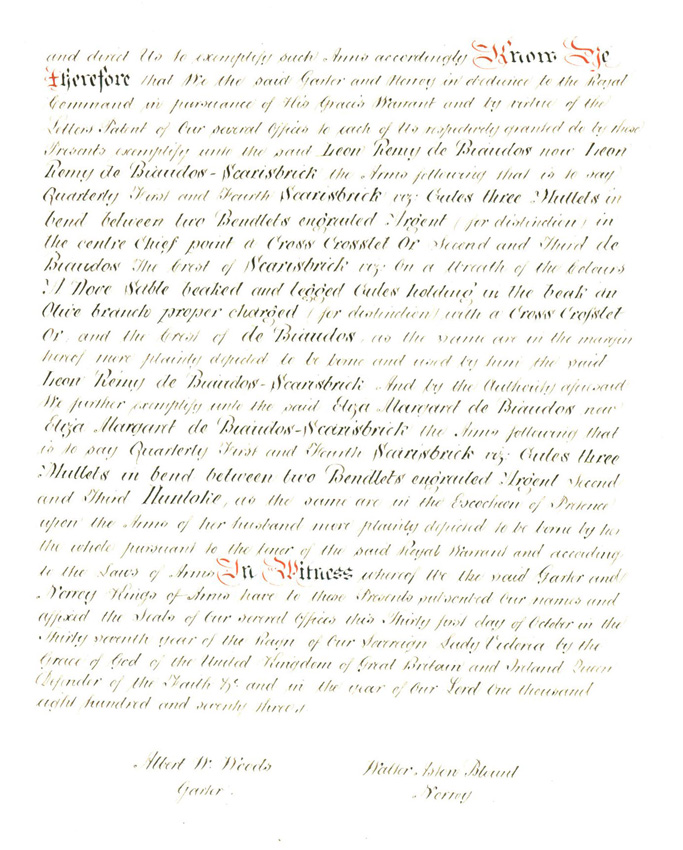 and direct Us to exemplify such Arms accordingly Know Ye
therefore that We the said Garter and Norroy in obedience to the Royal
Command in pursuance of His Grace's Warrant and by virtue of the
Letters Patent of Our several Offices to each of Us respectively granted do by these
Presents exemplify unto the said Leon Remy de Biaudos now Leon
Remy de Biaudos-Scarisbrick the Arms following that is to say
Quarterly First and Fourth Scarisbrick viz: Gules three Mullets in
bend between two Bendlets engrailed Argent (for distinction) in
the centre Chief point a Cross Crosslet Or Second and Third de
Biaudos The Crest of Scarisbrick viz: On a Wreath of the Colours
A Dove Sable beaked and legged Gules holding in the beak an
Olive branch proper charged (for distinction) with a Cross Crosslet
Or, and the Crest of de Biaudos, as the same are in the margin
hereof more plainly depicted to be borne and used by him the said
Leon Remy de Biaudos-Scarisbrick And by the Authority aforesaid
We further exemplify unto the said Eliza Margaret de Biaudos now
Eliza Margaret de Biaudos-Scarisbrick the Arms following that
is to say Quarterly First and Fourth Scarisbrick viz: Gules three
Mullets in bend between two Bendlets engrailed Argent Second
and Third Hunloke, as the same are in the Escocheon of Pretence
upon the Arms of her husband more plainly depicted to be borne by her
the whole pursuant to the tenor of the said Royal Warrant and according
to the Laws of Arms In Witness whereof We the said Garter and
Norroy Kings of Arms have to these Presents subscribed Our names and
affixed the Seals of Our several Offices this Thirty first day of October in the
Thirty seventh year of the Reign of Our Sovereign Lady Victoria by the
Grace of God of the United Kingdom of Great Britain and Ireland Queen
Defender of the Faith &c and in the year of Our Lord One thousand
eight hundred and seventy three.
Albert W. Woods
Garter.
Walter Aston Blount
Norroy